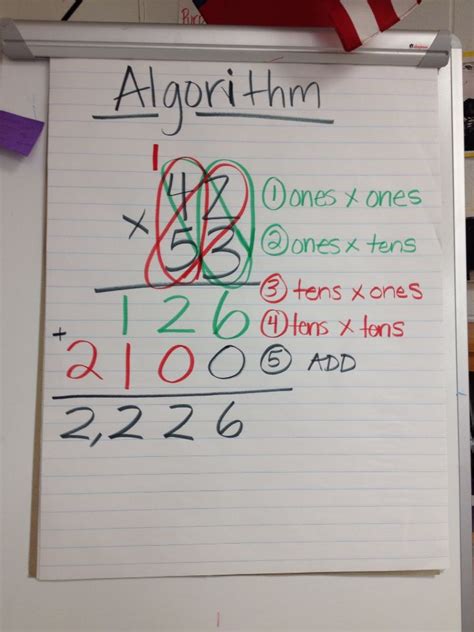 Algorithm
1
42 ① ones x ones
x 53 ② ones x tens
③ tens x ones
126 ④ tens x tens
+ 2100 ⑤ ADD
2,226